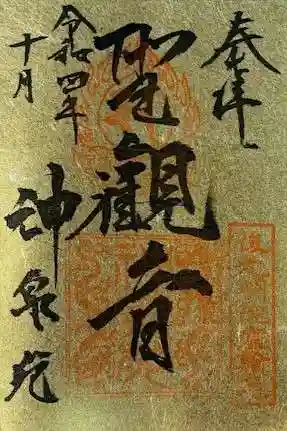 奉拝
聖観音
令和四年
十月
神泉苑